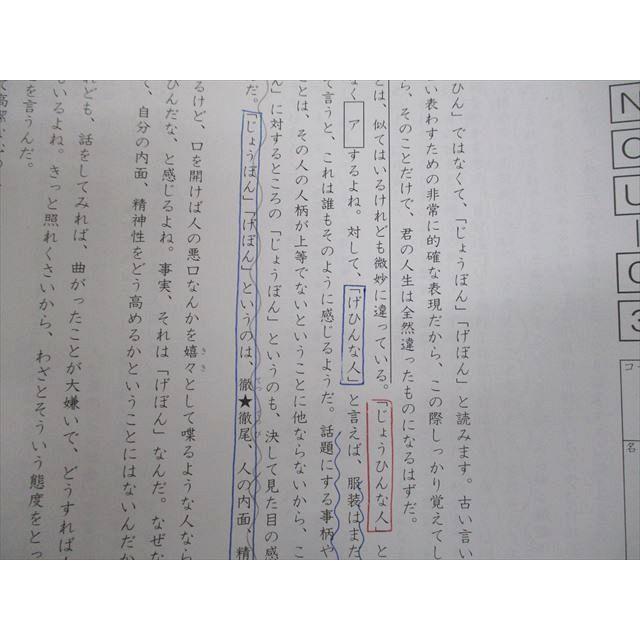 ひん」ではなくて、「じょうぼん」「げぼん」と読みます。古い言い
い表わすための非常に的確な表現だから、この際しっかり覚えてし
ら、そのことだけで、君の人生は全然違ったものになるはずだ。
とは、似てはいるけれども微妙に違っている。「じょうひんな人」と
なく ア するよね。対して、「げひんな人」と言えば、服装はまた
て言うと、これは誰もそのように感じるようだ。話題にする事柄や
ことは、その人の人柄が上等でないということに他ならないから、こ
ん」に対するところの「じょうぼん」というのも、決して見た目の感
だ。「じょうぼん」「げぼん」というのは、徹★徹尾、人の内面、精
てっ とうてつ び
るけど、口を開けば人の悪口なんかを嬉々として喋るような人なら
きき
ひんだな、と感じるよね。事実、それは「げぼん」なんだ。なぜな
て、自分の内面、精神性をどう高めるかということにはないんだか
れども、話をしてみれば、曲がったことが大嫌いで、どうすれば
もいるよね。きっと照れくさいから、わざとそういう態度をとっ
を言うんだ。
NOUI03
コー
名